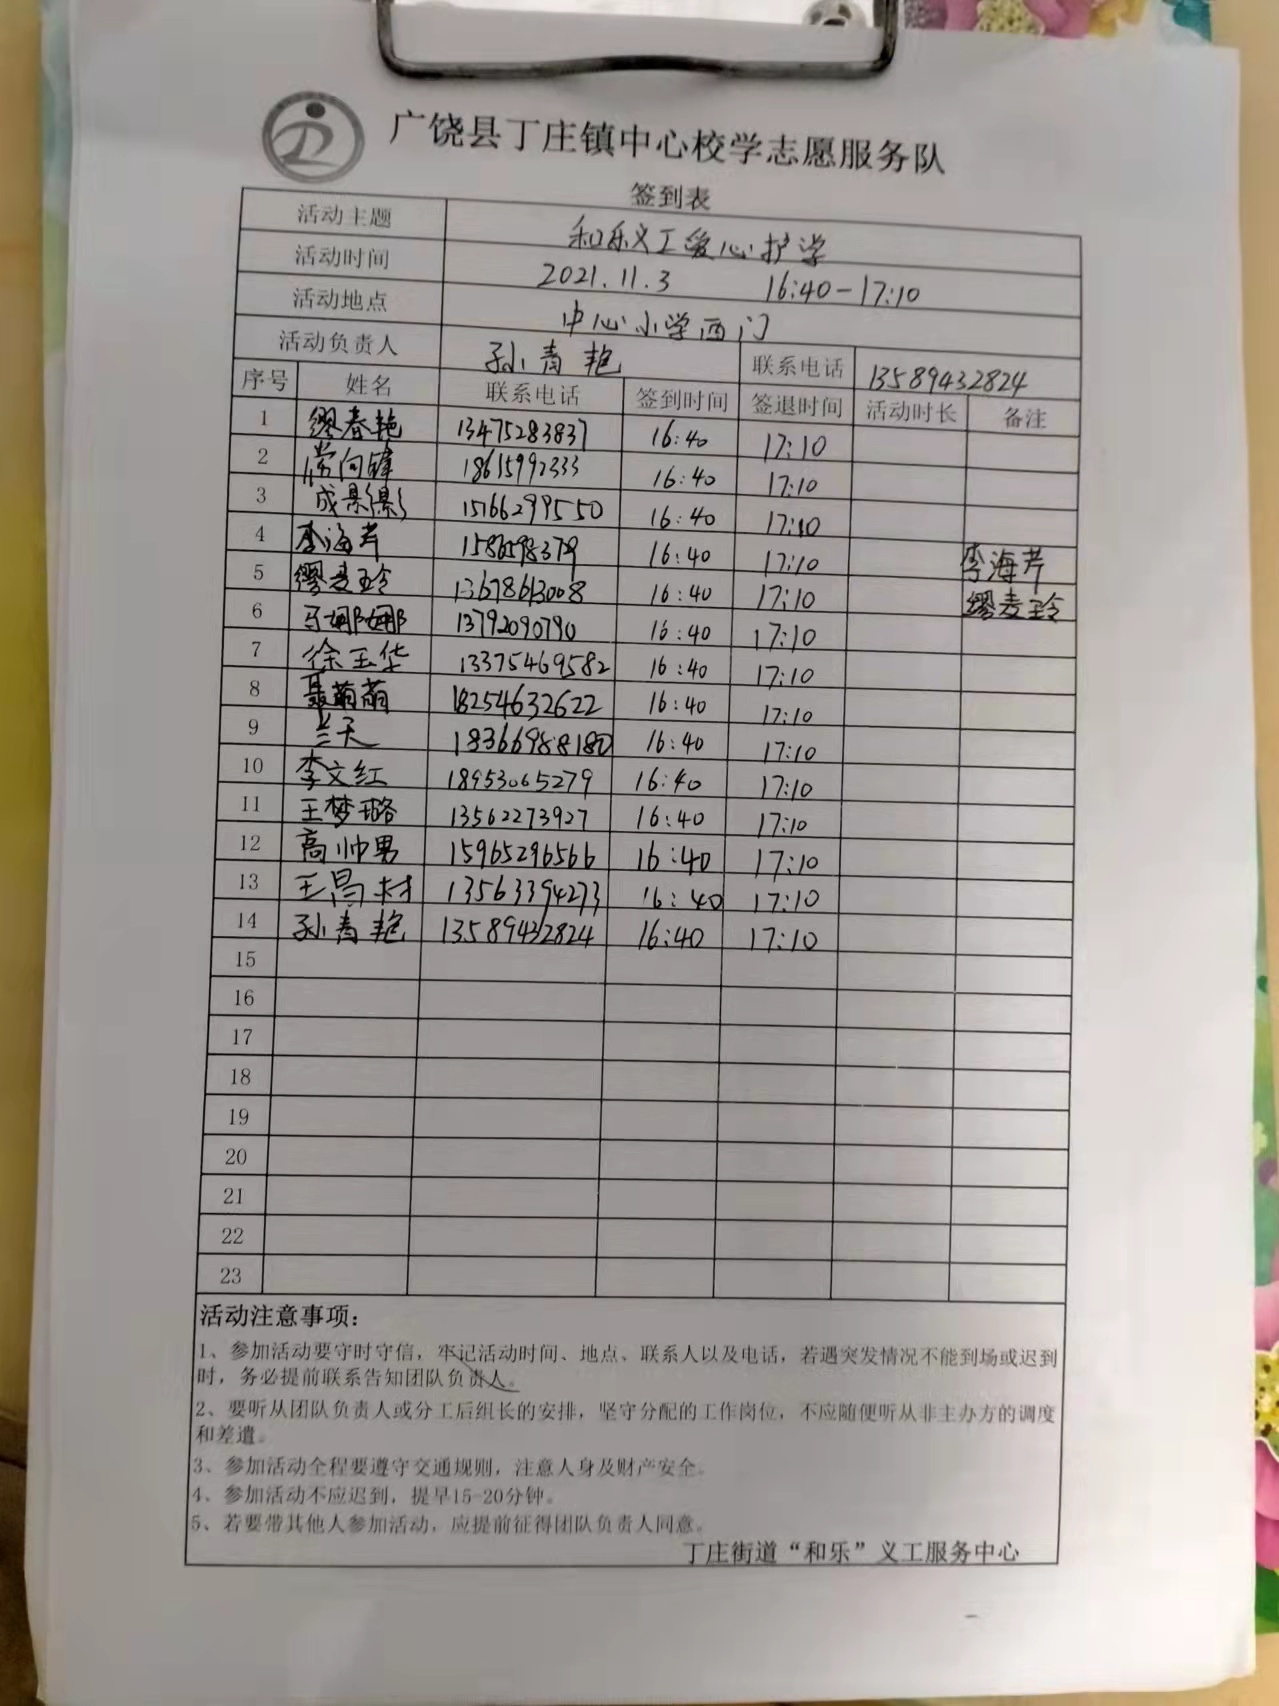 广饶县丁庄镇中心校学志愿服务队
签到表
活动主题 和乐义工爱心护学
活动时间 2021.11.3 16:40-17:10
活动地点 中心小学西门
活动负责人 孙青艳 联系电话 13589432824
序号 姓名 联系电话 签到时间 签退时间 活动时长 备注
1 缪春艳 13475283837 16:40 17:10
2 常向锋 18615992333 16:40 17:10
3 成影影 15166299550 16:40 17:10
4 李海芹 1586598379 16:40 17:10 李海芹
5 缪麦玲 13678613008 16:40 17:10 缪麦玲
6 马娜娜 13792090790 16:40 17:10
7 徐玉华 13375469582 16:40 17:10
8 聂萌萌 18254632622 16:40 17:10
9 兰天 18366988180 16:40 17:10
10 李文红 18953065279 16:40 17:10
11 王梦璐 13562273927 16:40 17:10
12 高帅男 15965296566 16:40 17:10
13 王昌材 13563394273 16:40 17:10
14 孙青艳 13589432824 16:40 17:10
15
16
17
18
19
20
21
22
23
活动注意事项：
1、参加活动要守时守信，牢记活动时间、地点、联系人以及电话，若遇突发情况不能到场或迟到
时，务必提前联系告知团队负责人。
2、要听从团队负责人或分工后组长的安排，坚守分配的工作岗位，不应随便听从非主办方的调度
和差遣。
3、参加活动全程要遵守交通规则，注意人身及财产安全。
4、参加活动不应迟到，提早15-20分钟。
5、若要带其他人参加活动，应提前征得团队负责人同意。
丁庄街道“和乐”义工服务中心